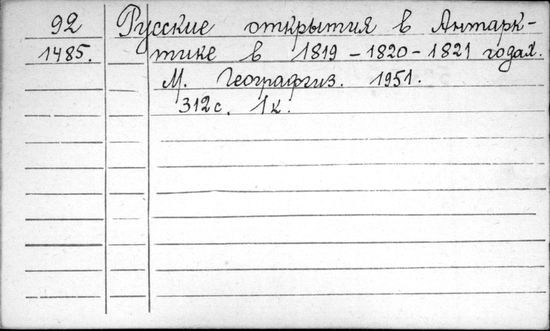 92 Русские открытия в Антарк-
1485. тике в 1819 - 1820 - 1821 годах.
М. Географгиз. 1951.
312с. 1к.